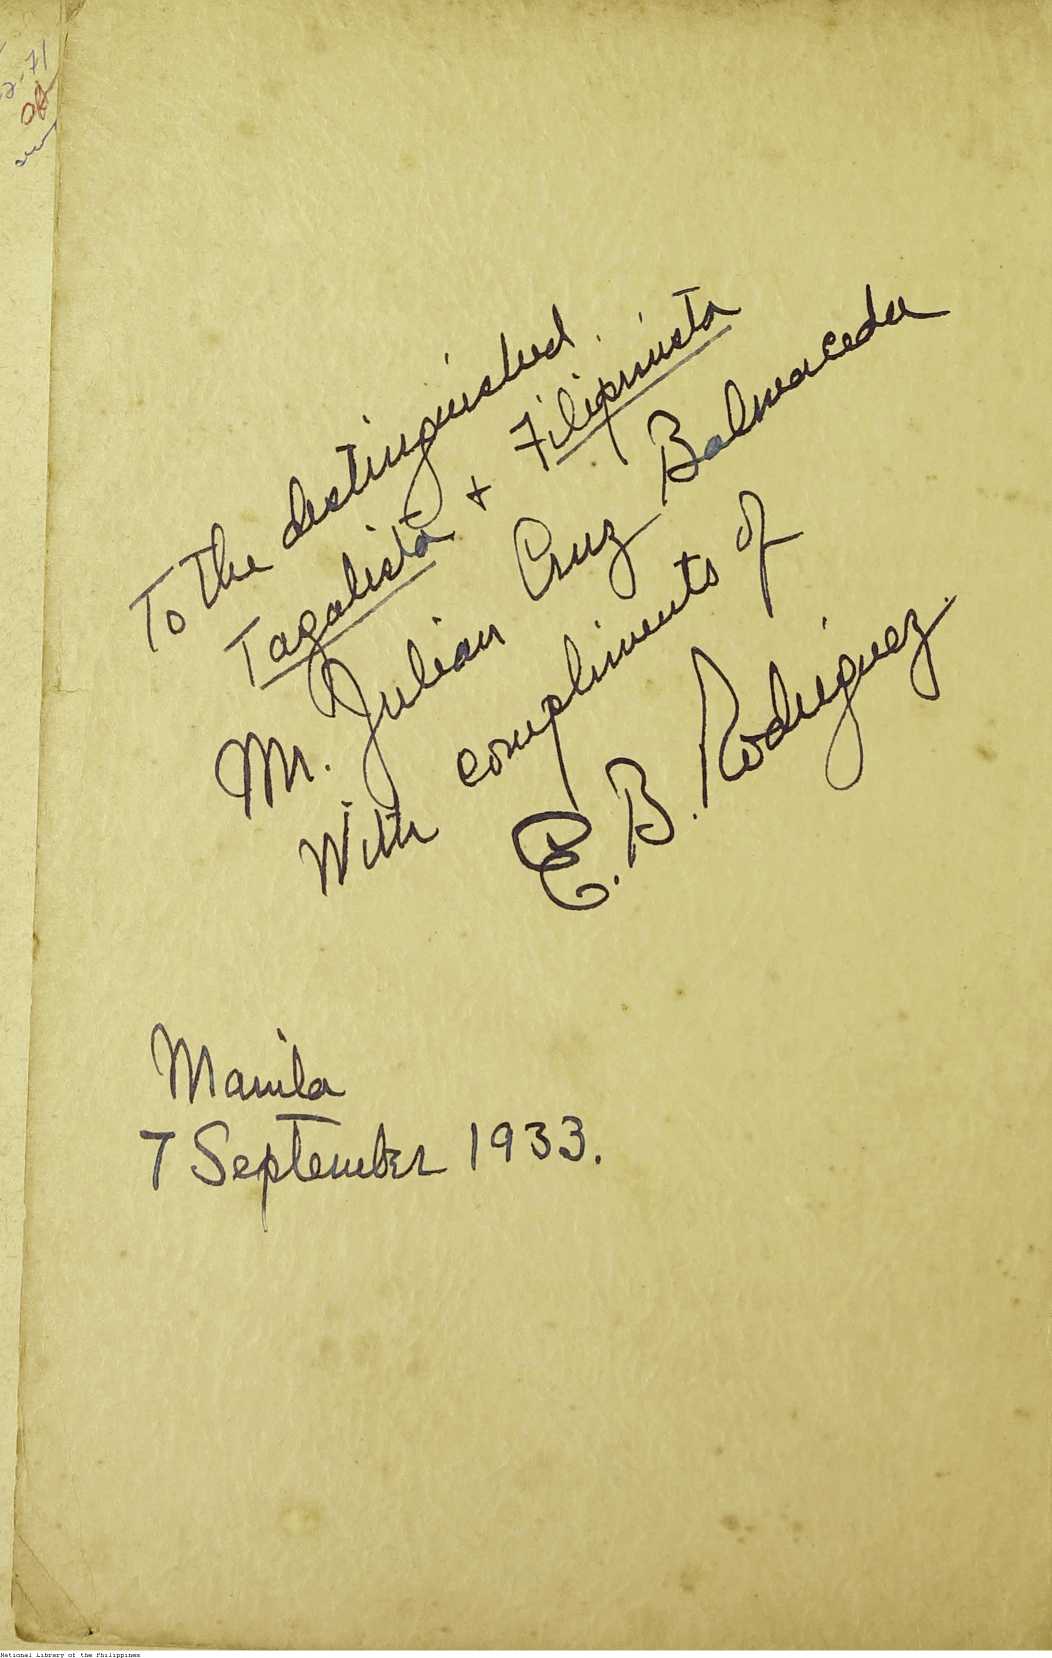 To the distinguished
Tagalista + Filipinista
Mr. Julian Cruz Balmaceda
With compliments of
E. B. Rodriguez.
Manila
7 September 1933.
National Library of the Philippines